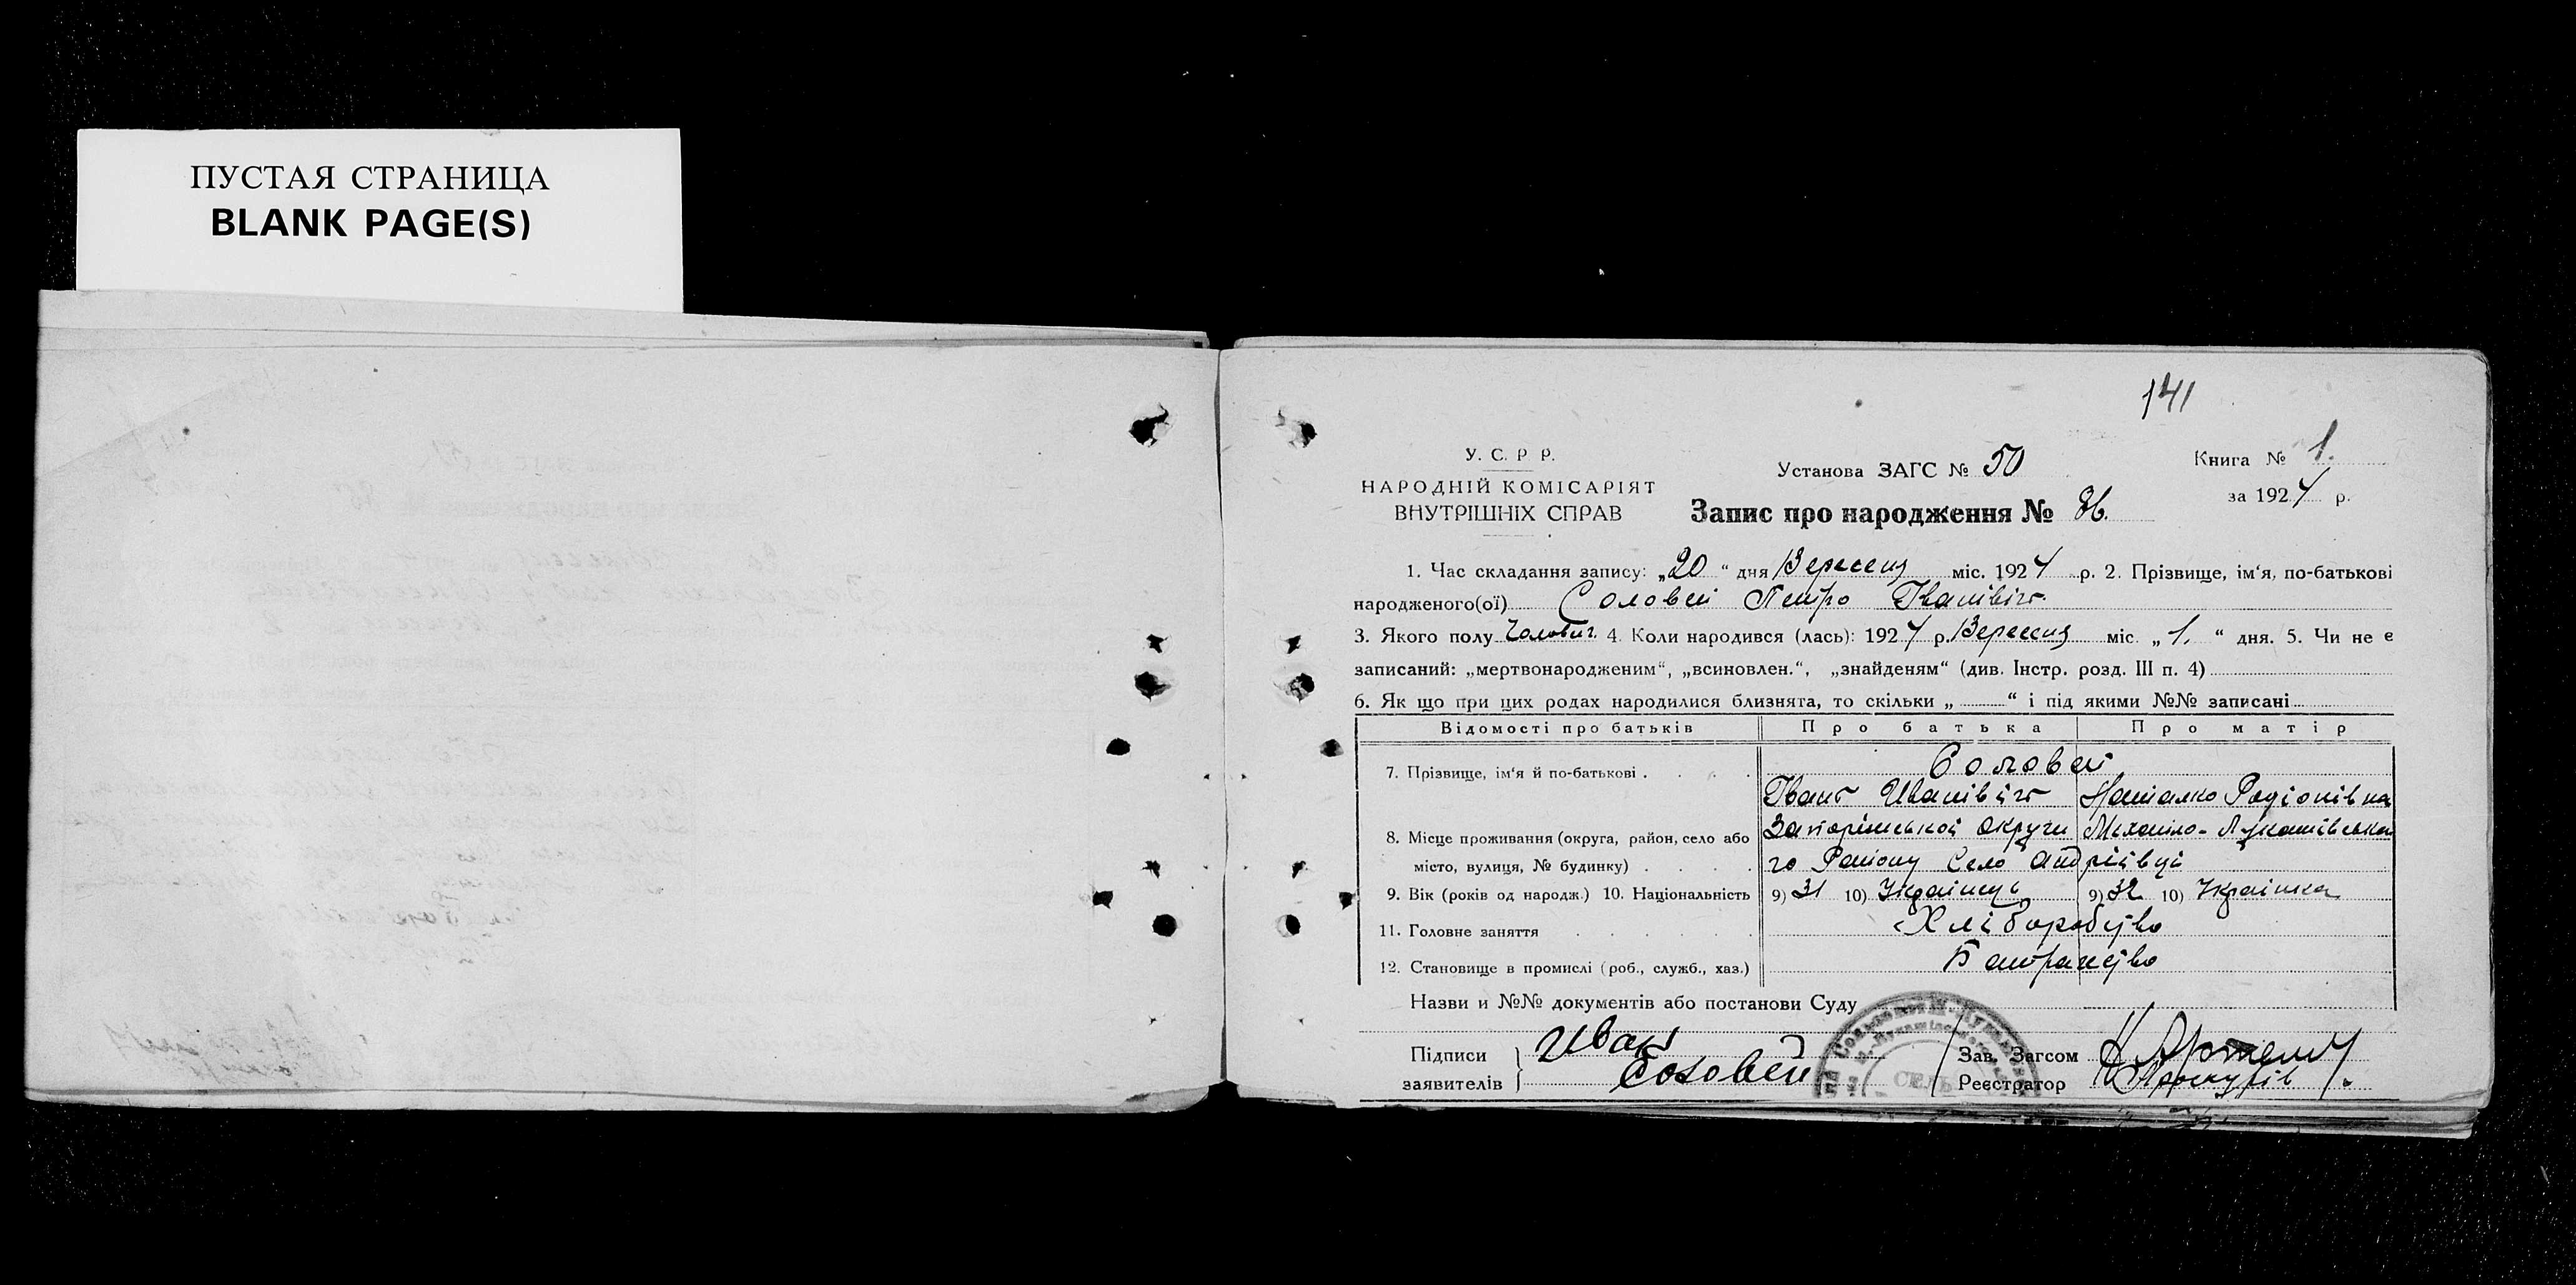 ПУСТАЯ СТРАНИЦА
BLANK PAGE(S)
141
У. С. Р Р.
НАРОДНІЙ КОМІСАРІЯТ
ВНУТРІШНІХ СПРАВ
Установа ЗАГС № 50
Запис про народження №
Книга № 1.
за 1924 р.
1. Час складання запису: „20“ дня Вересня міс. 1924 р. 2. Прізвище, ім‘я, по-батькові
народженого(ої) Соловей Петро Іванівіч
3. Якого полу Чоловіч. 4. Коли народився (лась): 1924 р. Вересня міс. „1.“ дня. 5. Чи не є
записаний: „мертвонародженим“, „всиновлен.“, „знайденям“ (див. Інстр. розд. III п. 4)
6. Як що при цих родах народилися близнята, то скільки „ “ і під якими №№ записані
Відомості про батьків Про батька Про матір
7. Прізвище, ім‘я й по-батькові Соловей
Іван Иванівіч Наталко Родіонівна
8. Місце проживання (округа, район, село або Запоріжської округи Михайло-Лукашівсько
місто, вулиця, № будинку) го Району Село Андріївці
9. Вік (років од народж.) 10. Національність 9) 31 10) Українець 9) 32 10) Українка
11. Головне заняття Хліборобство
12. Становище в промислі (роб., служб., хаз.) Батрацтво
Назви и №№ документів або постанови Суду
Підписи Иван
заявителів Соловей
Зав. Загсом
Реєстратор